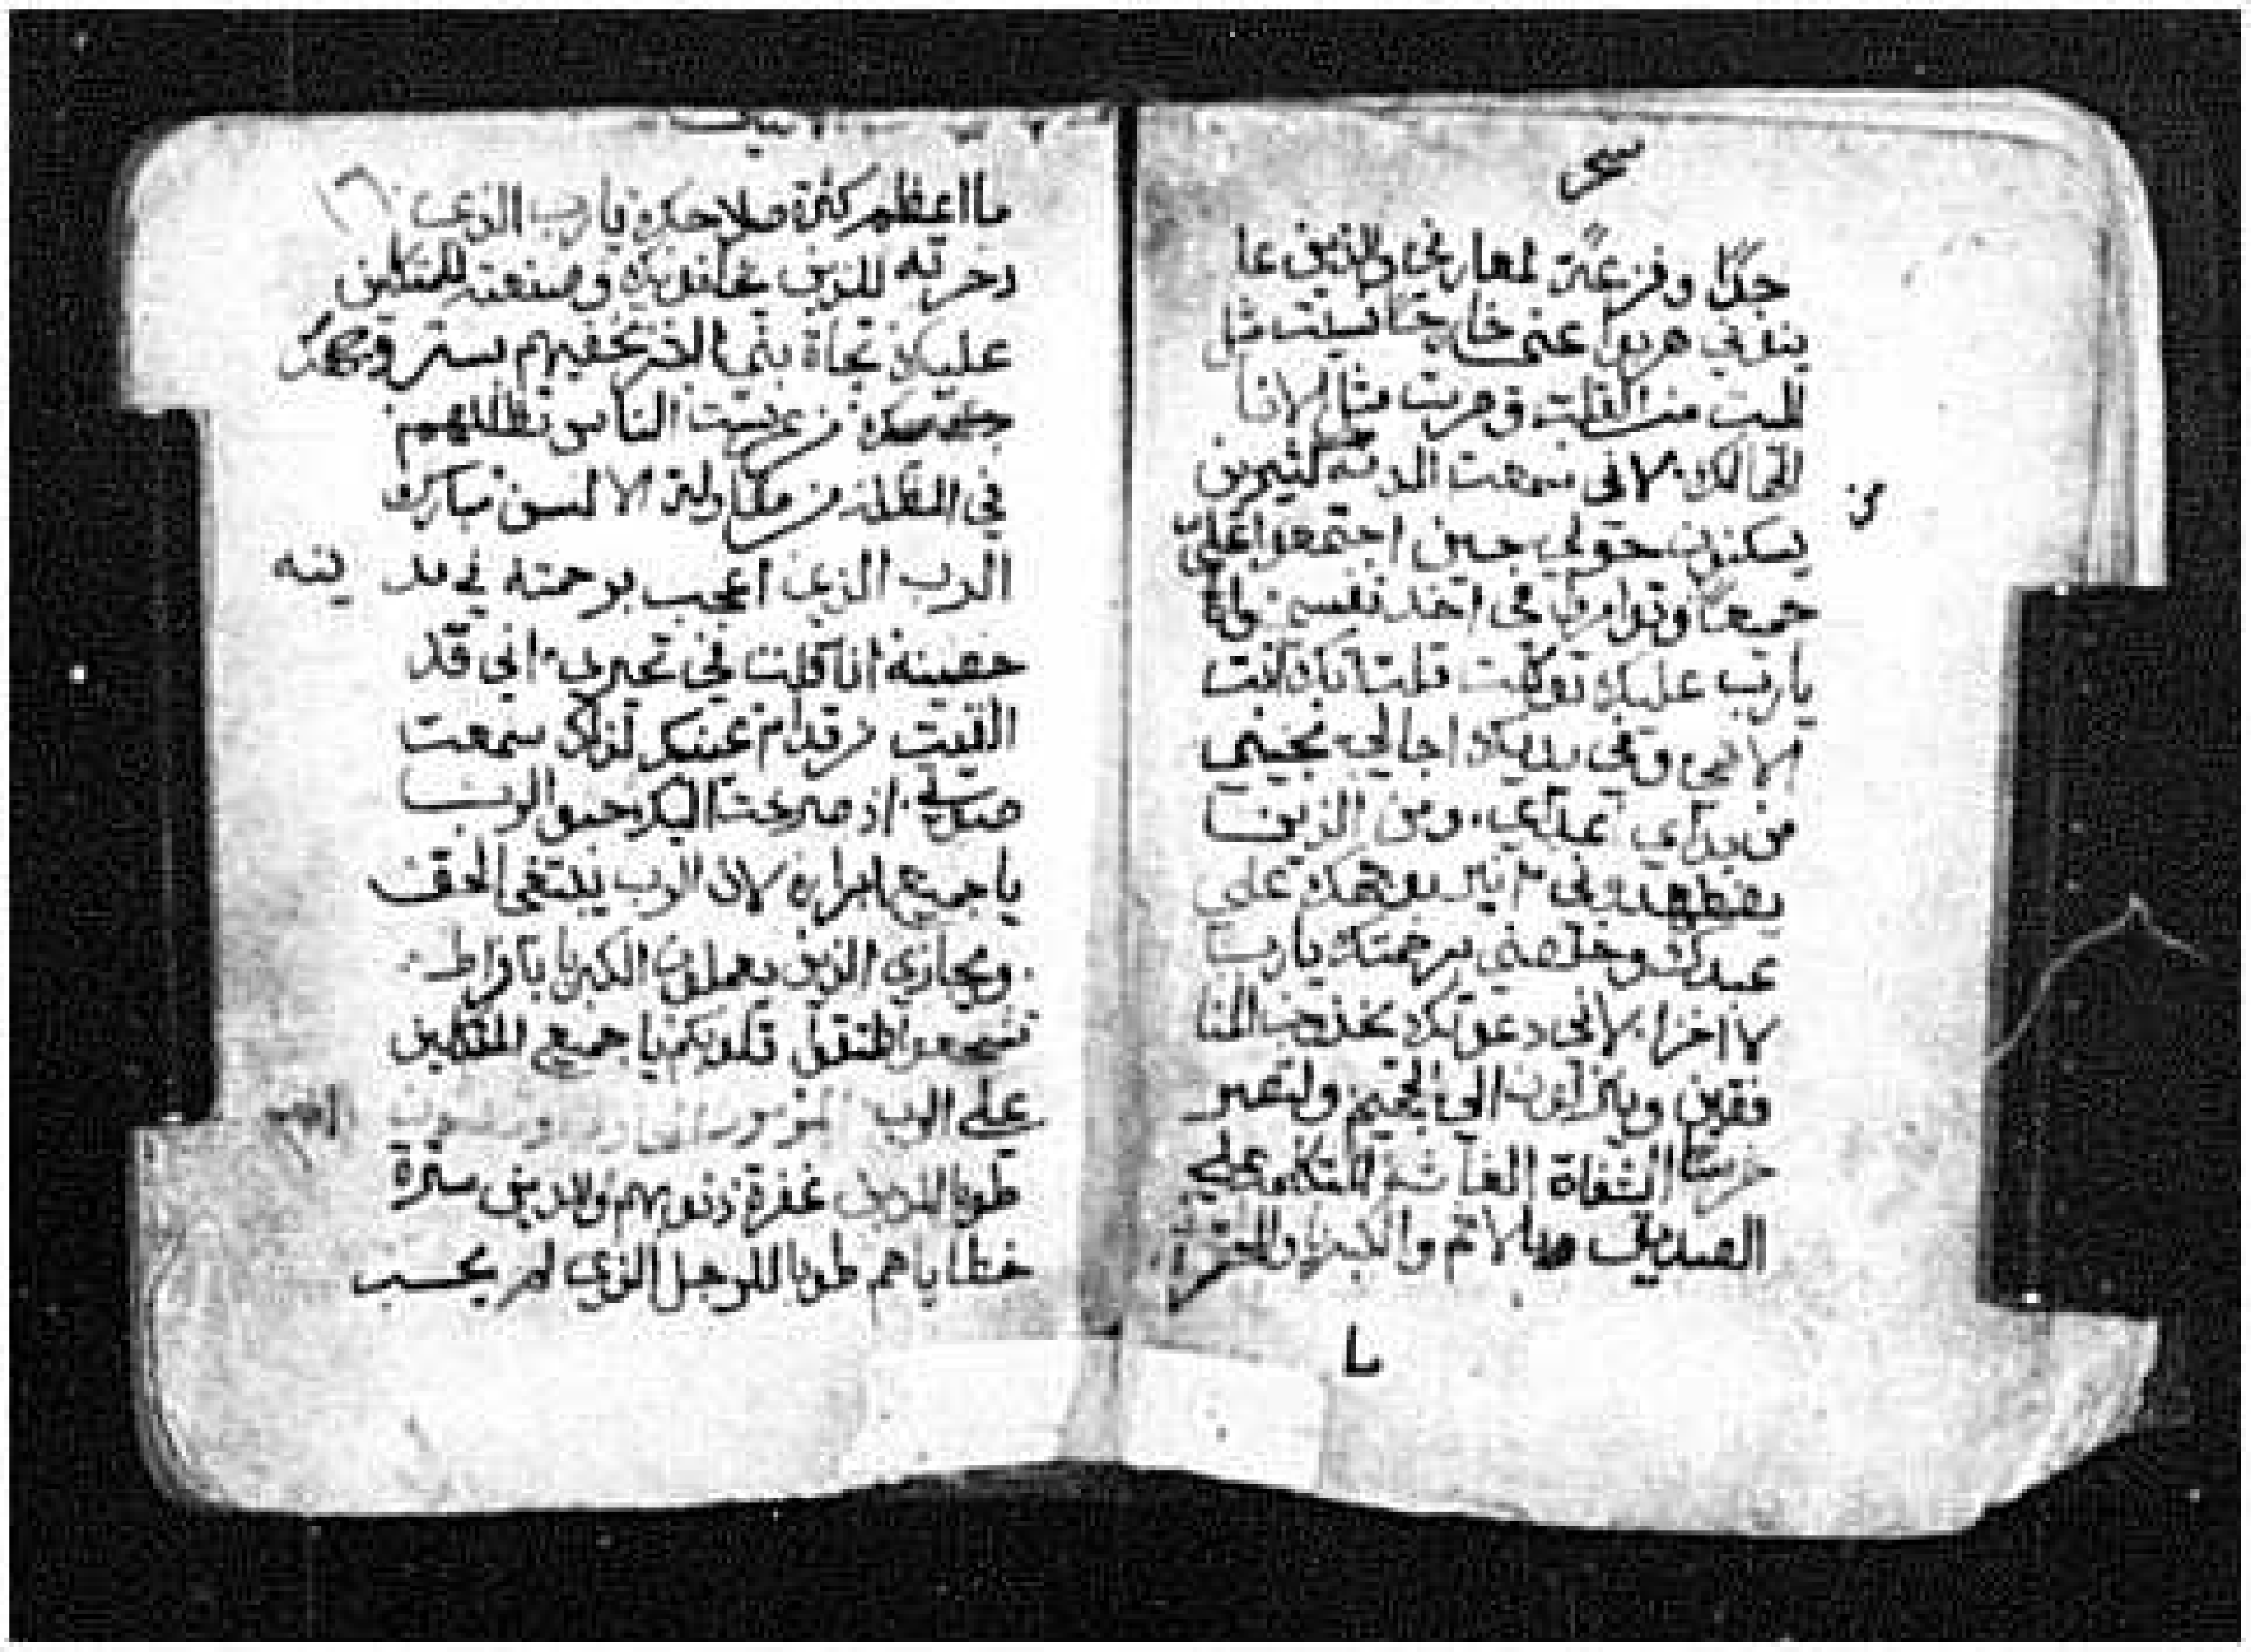 جدًا وفزعة لمعارفي والذين عا
ينوني هربوا عني خارجًا نسيت مثل
الميت من القلب وصرت مثل الانا
الهالك لاني سمعت المذمة كثيرين
يسكنون حولي حين اجتمعوا عليّ
جميعًا وتوامروا في اخذ نفسي وانا
يارب عليك توكلت قلت انك انت
الاهي وفي يديك اجالي نجيني
من يداي اعداي. ومن الذين
يضطهدوني انير بوجهك علي
عبدك وخلصني برحمتك يارب
لا اخزا لاني دعوتك يخزون المنا
فقين وينزلون الي الجحيم ولتصير
خرسًا الشفاة الغاشة المتكلمة علي
الصديق بالاثم والكبريا والمحقرة
ما اعظم كثرة صلاحك يارب الذي
دخرته للذين يخافونك وصنعته للمتكلين
عليك تجاة بني البشر تخفيهم بستر وجهك
من الناس تظللهم
في المظلة من مقاولة الالسن تبارك
الرب الذي اعجب برحمته في مد ينه
حصينة انا قلت في تحيري اني قد
القيت من قدام عينيك لذلك سمعت
صوت اذ صرخت اليك حبوا الرب
ياجميع ابراره لان الرب يبتغي الحق
ويجازي الذين يعملون الكبريا بافراط
تشجعوا ولتقوا قلوبكم ياجميع المتكلين
علي الرب
طوبا للذين غفرة ذنوبهم والذين سترة
خطاياهم طوبا للرجل الذي لم يحسب